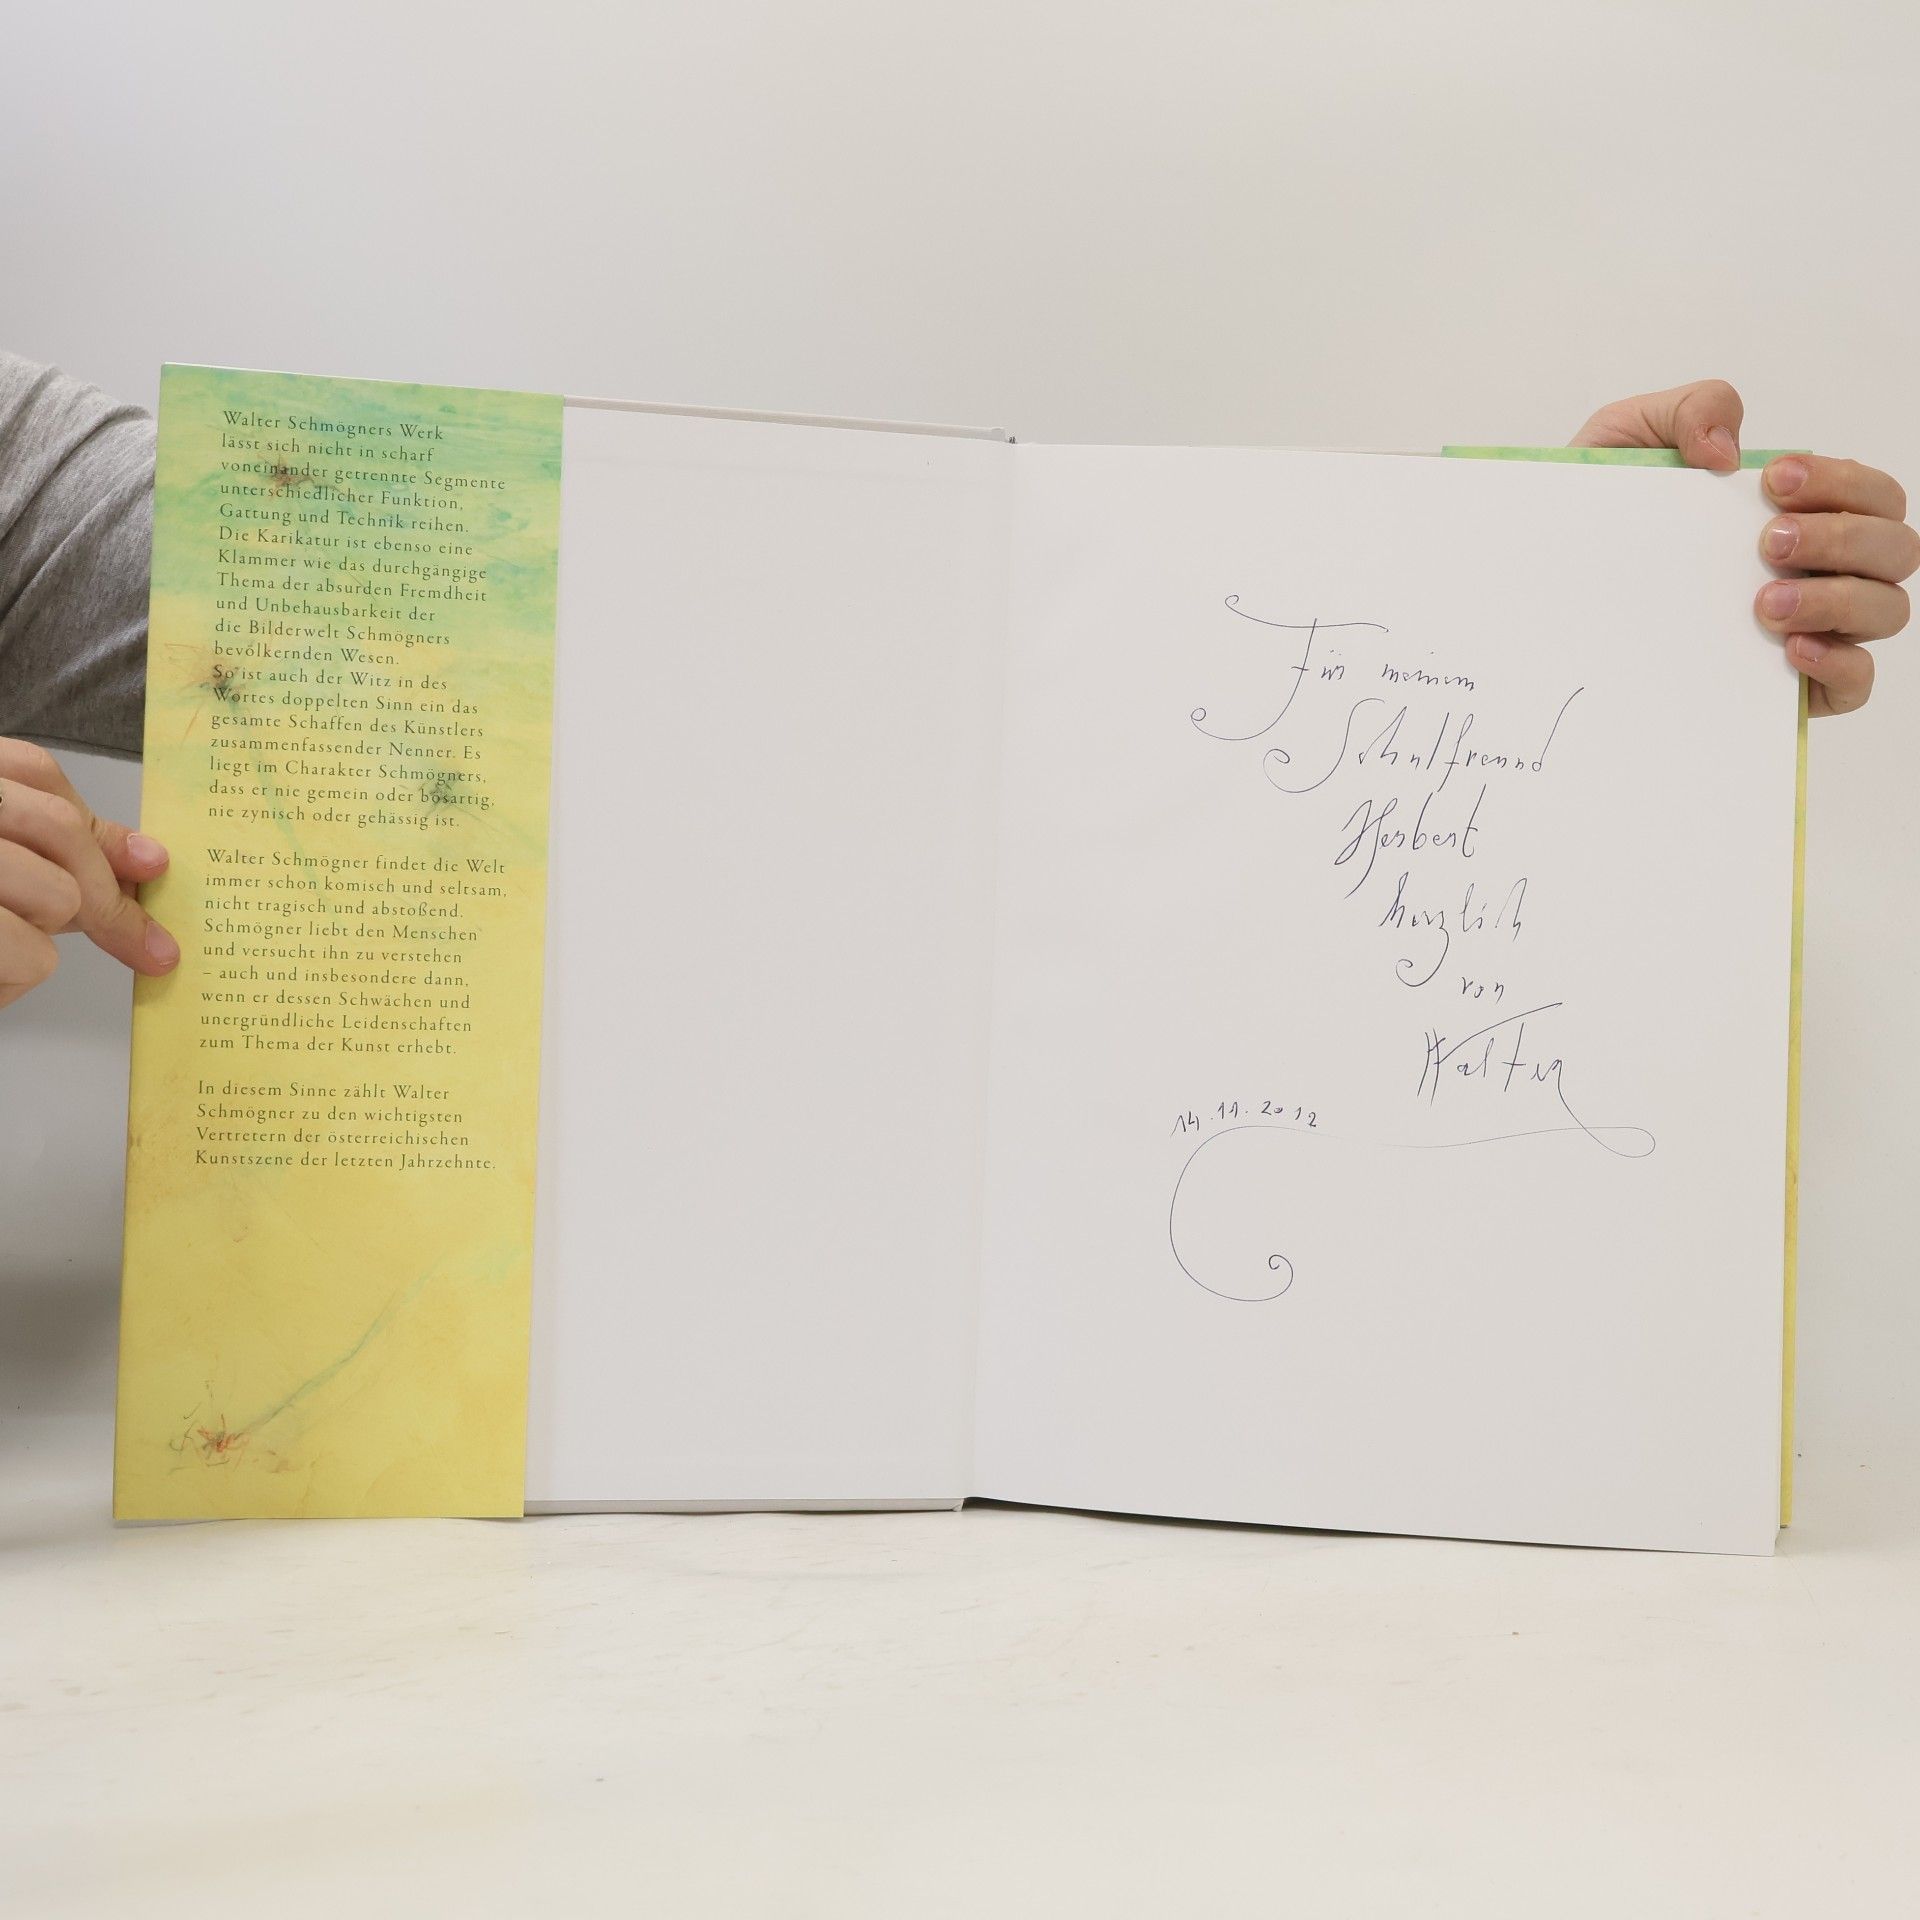 Walter Schmögners Werk
lässt sich nicht in scharf
voneinander getrennte Segmente
unterschiedlicher Funktion,
Gattung und Technik reihen.
Die Karikatur ist ebenso eine
Klammer wie das durchgängige
Thema der absurden Fremdheit
und Unbehausbarkeit der
die Bilderwelt Schmögners
bevölkernden Wesen.
So ist auch der Witz in des
Wortes doppelten Sinn ein das
gesamte Schaffen des Künstlers
zusammenfassender Nenner. Es
liegt im Charakter Schmögners,
dass er nie gemein oder bösartig,
nie zynisch oder gehässig ist.
Walter Schmögner findet die Welt
immer schon komisch und seltsam,
nicht tragisch und abstoßend.
Schmögner liebt den Menschen
und versucht ihn zu verstehen
– auch und insbesondere dann,
wenn er dessen Schwächen und
unergründliche Leidenschaften
zum Thema der Kunst erhebt.
In diesem Sinne zählt Walter
Schmögner zu den wichtigsten
Vertretern der österreichischen
Kunstszene der letzten Jahrzehnte.
Für meinem
Schulfreund
Herbert
herzlich
von
Walter
14.11.2012